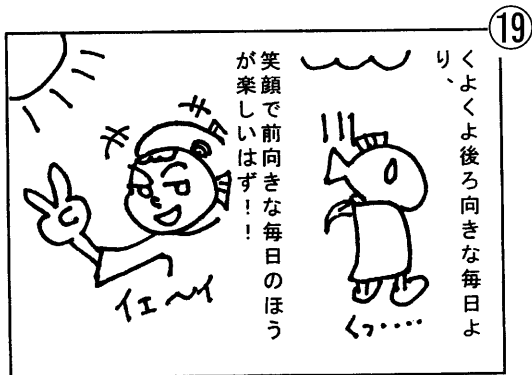 ⑲
くよくよ後ろ向きな毎日よ
り、
くっ‥‥
笑顔で前向きな毎日のほう
が楽しいはず！！
イエ～イ